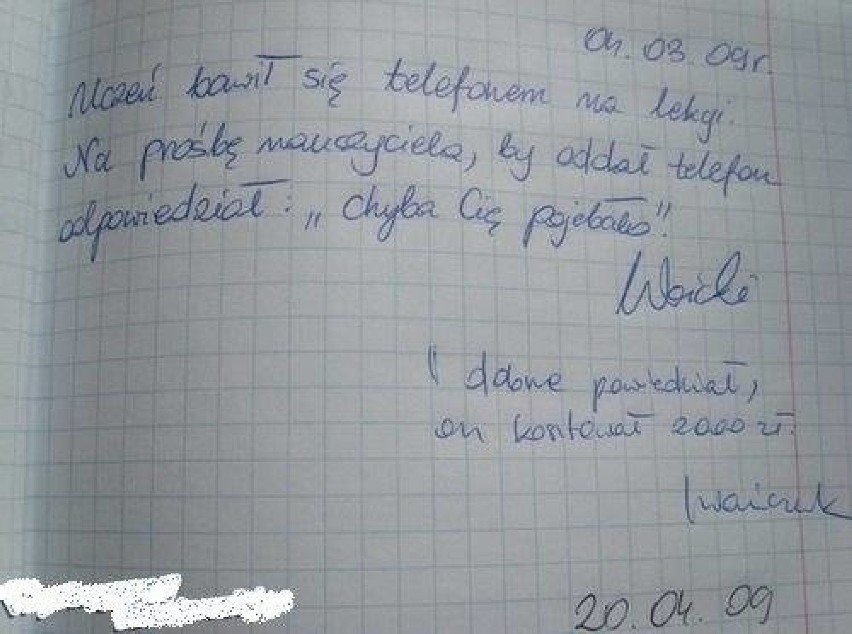 04.03.09r.
Uczeń bawił się telefonem na lekcji.
Na prośbę nauczyciela, by oddał telefon
odpowiedział: „Chyba Cię pojebało".
I dobrze powiedział,
on kosztował 2000 zł.
20.04.09